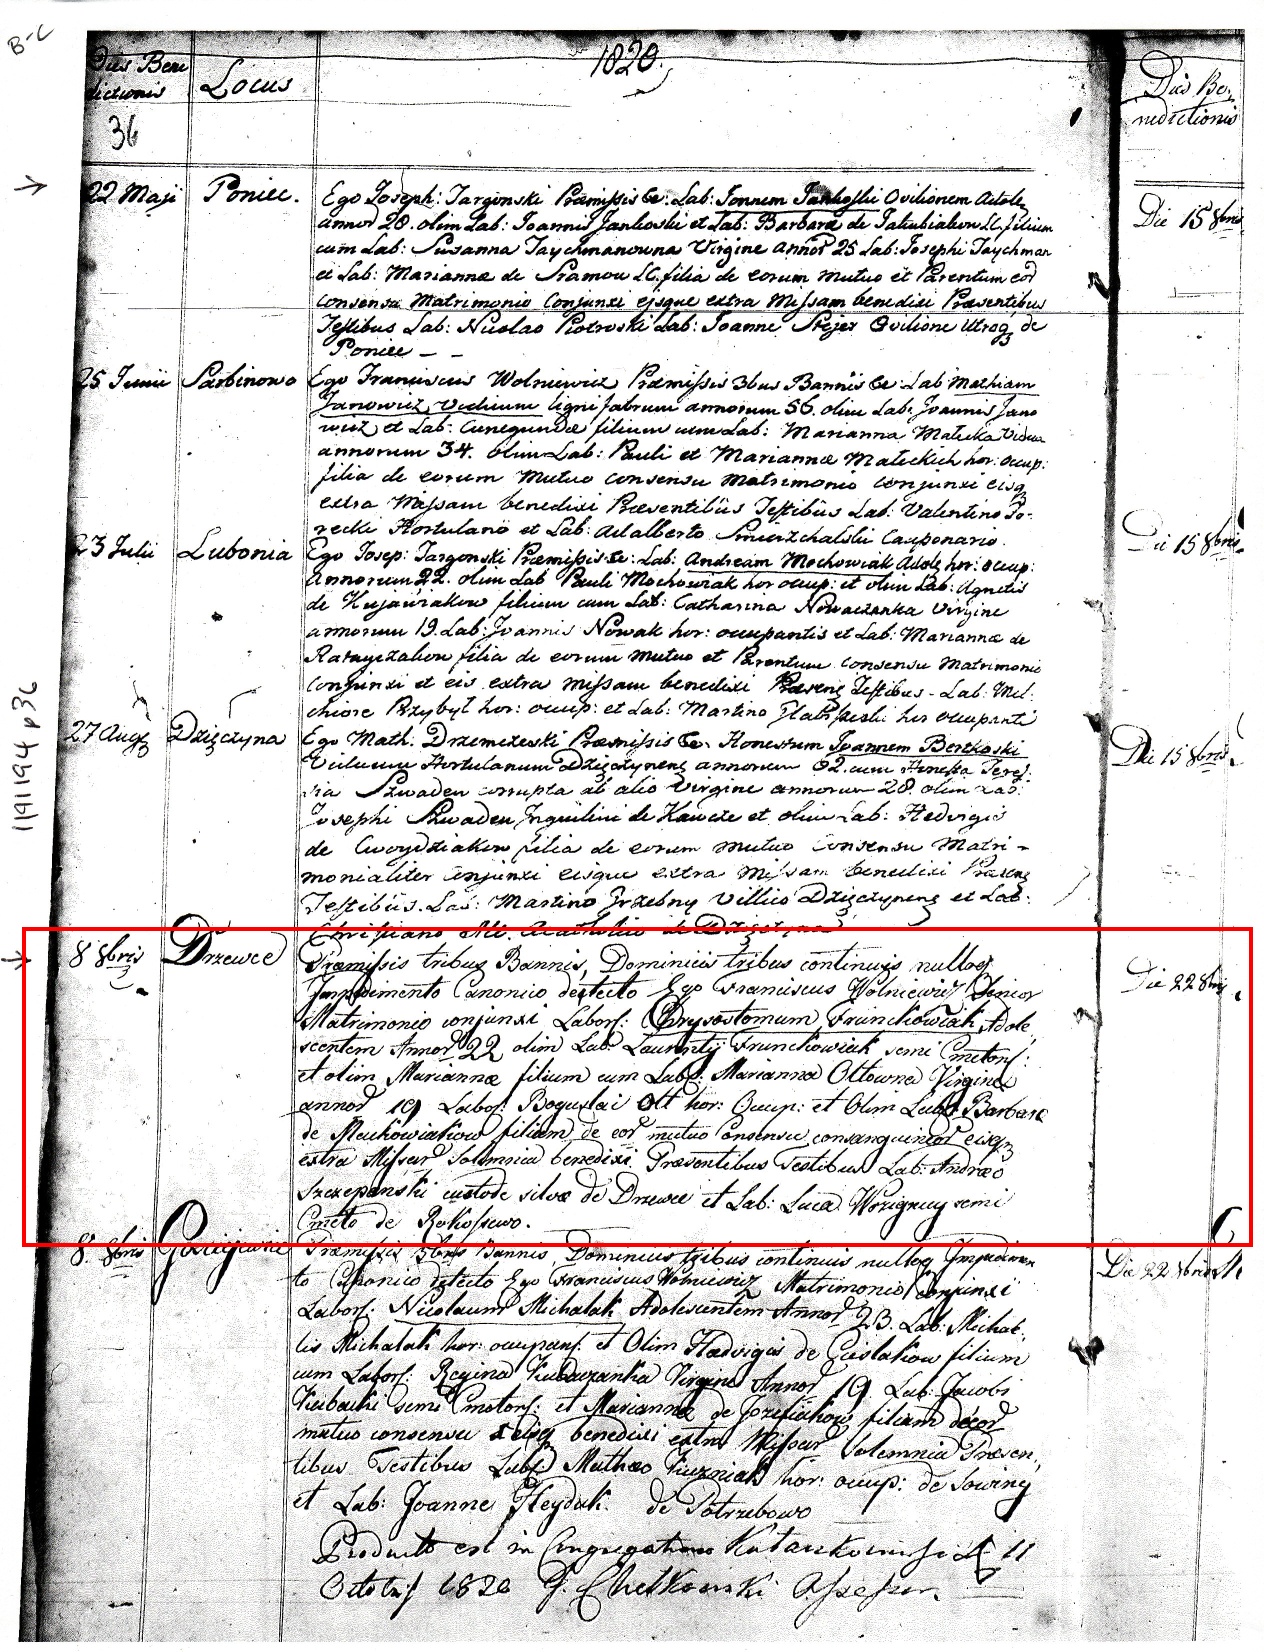 B-C
Dies Bene
dictionis
Locus
1820.
Dies Be
nedictionis
36
22 Maji Poniec. Ego Joseph: Targonski Præmissis &c: Lab: Jonnem Jankoski Ovilionem Adole
annor 28. olim Lab: Joannis Jankoski et Lab: Barbara de Jakubiakow LC. filium
cum Lab: Susanna Taychmanowna Virgine annor 25 Lab: Josephi Taychman
et Lab: Marianna de LC. filia de eorum mutuo et Parentum eor
consensu Matrimonio Conjunxi eisque extra Missam benedixi Præsentibus
Testibus Lab: Nicolao Piotroski Lab: Joanne Ovilione utroq de
Poniec - -
Die 15 8bris
25 Junii Sarbinowo Ego Franciscus Wolniewicz Præmissis 3bus Bannis &c: Lab Mathiam
Janowicz, Viduum lignifabrum annorum 56. olim Lab: Joannis Jano
wicz et Lab: Cunegundæ filium cum Lab: Marianna Malecka Vidua
annorum 34. olim Lab: Pauli et Mariannæ Maleckich hor: occup:
filia de eorum Mutuo consensu Matrimonio conjunxi eisq
extra Missam benedixi Præsentibûs Testibûs Lab: Valentino Go-
recki Hortulano et Lab: Adalberto Smierzchalski Cauponario.
23 Julii Lubonia Ego Josep: Targonski Præmissis &c: Lab: Andream Mochowiak Adole hor: occup:
annorum 22. olim Lab Pauli Mochowiak hor occup: et olim Lab: Agnetis
de Kujawiakow filium cum Lab: Catharina Nowaczanka Virgine
annorum 19. Lab: Joannis Nowak hor: occupantis et Lab: Mariannæ de
Ratayczakow filia de eorum mutuo et Parentum consensu Matrimonio
conjunxi et eis extra missam benedixi Præsens Testibus - Lab: Mel:
chiore Przybyl hor: occup: et Lab: Martino hor occupanti
Die 15 8bris
27 Augs Dzięczyna Ego Math. Drzemczeski Præmissis &c. Honestum Joannem Bertkoski
Viduum Hortulanum Dzięczynens annorum 62. cum Honesta There
sia Szwaden corrupta ab alio Virgine annorum 28. olim Lab:
Josephi Szwaden Inquilini de Kawcze et olim Lab: Hedvigis
de Cwoydziakow filia de eorum mutuo consensu Matri-
monialiter conjunxi eisque extra Missam benedixi Præsens
Testibûs. Lab: Martino Grzebny Villico Dzięczynens et Lab:
Christiano Acatholico de Dzięczyna
Die 15 8bris
191194 p36
8 8bris Drzewce Præmissis tribus Bannis, Dominicis tribus continuis nulloq
Impedimento Canonico detecto Ego Franciscus Wolniewicz Senior
Matrimonio conjunxi Labors: Chrysostomum Franckowiak, Adole
scentem Annor 22 olim Lab: Laurentij Franckowiak semi Cmetons:
et olim Mariannæ filium cum Labs: Marianna Ottowna Virgine
annor 19 Labors: Boguslai Ott hor: Occup: et Olim Labs Barbara
de Maćkowiakow filiam de eor mutuo Consensu consanguineor eisq
extra Missar Solemnia benedixi. Præsentibus Testibus Lab: Andræo
Szczepanski custode silvæ de Drzewce et Lab: Luca Wozigney semi
Cmeto de Rokossewo.
Die 22 8bris
8. 8bris Præmissis 3bus Bannis, Dominicis tribus continuis nulloq Impedimen
to Canonico detecto Ego Franciscus Wolniewicz Matrimonio conjunxi
Labors: Nicolaum Michalak Adolescentem Annor 23. Lab: Michae:
lis Michalak hor: occupans: et Olim Hædvigis de Cieslakow filium
cum Labors: Regina Virgine Annor 19. Lab: Jacobi
semi Cmetons: et Mariannæ de Jozefiakow filiam de eor
mutuo consensu eisq benedixi extra Missar Solemnia Præsen,
tibus Testibus Labs Mathæo hor: occup: de Sowiny
et Lab: Joanne Heyduk. de Potrzebowo
Die 22 8bris
Producto est in Congregatione 11
Octobris 1820 J. Chelkowski Assessor.